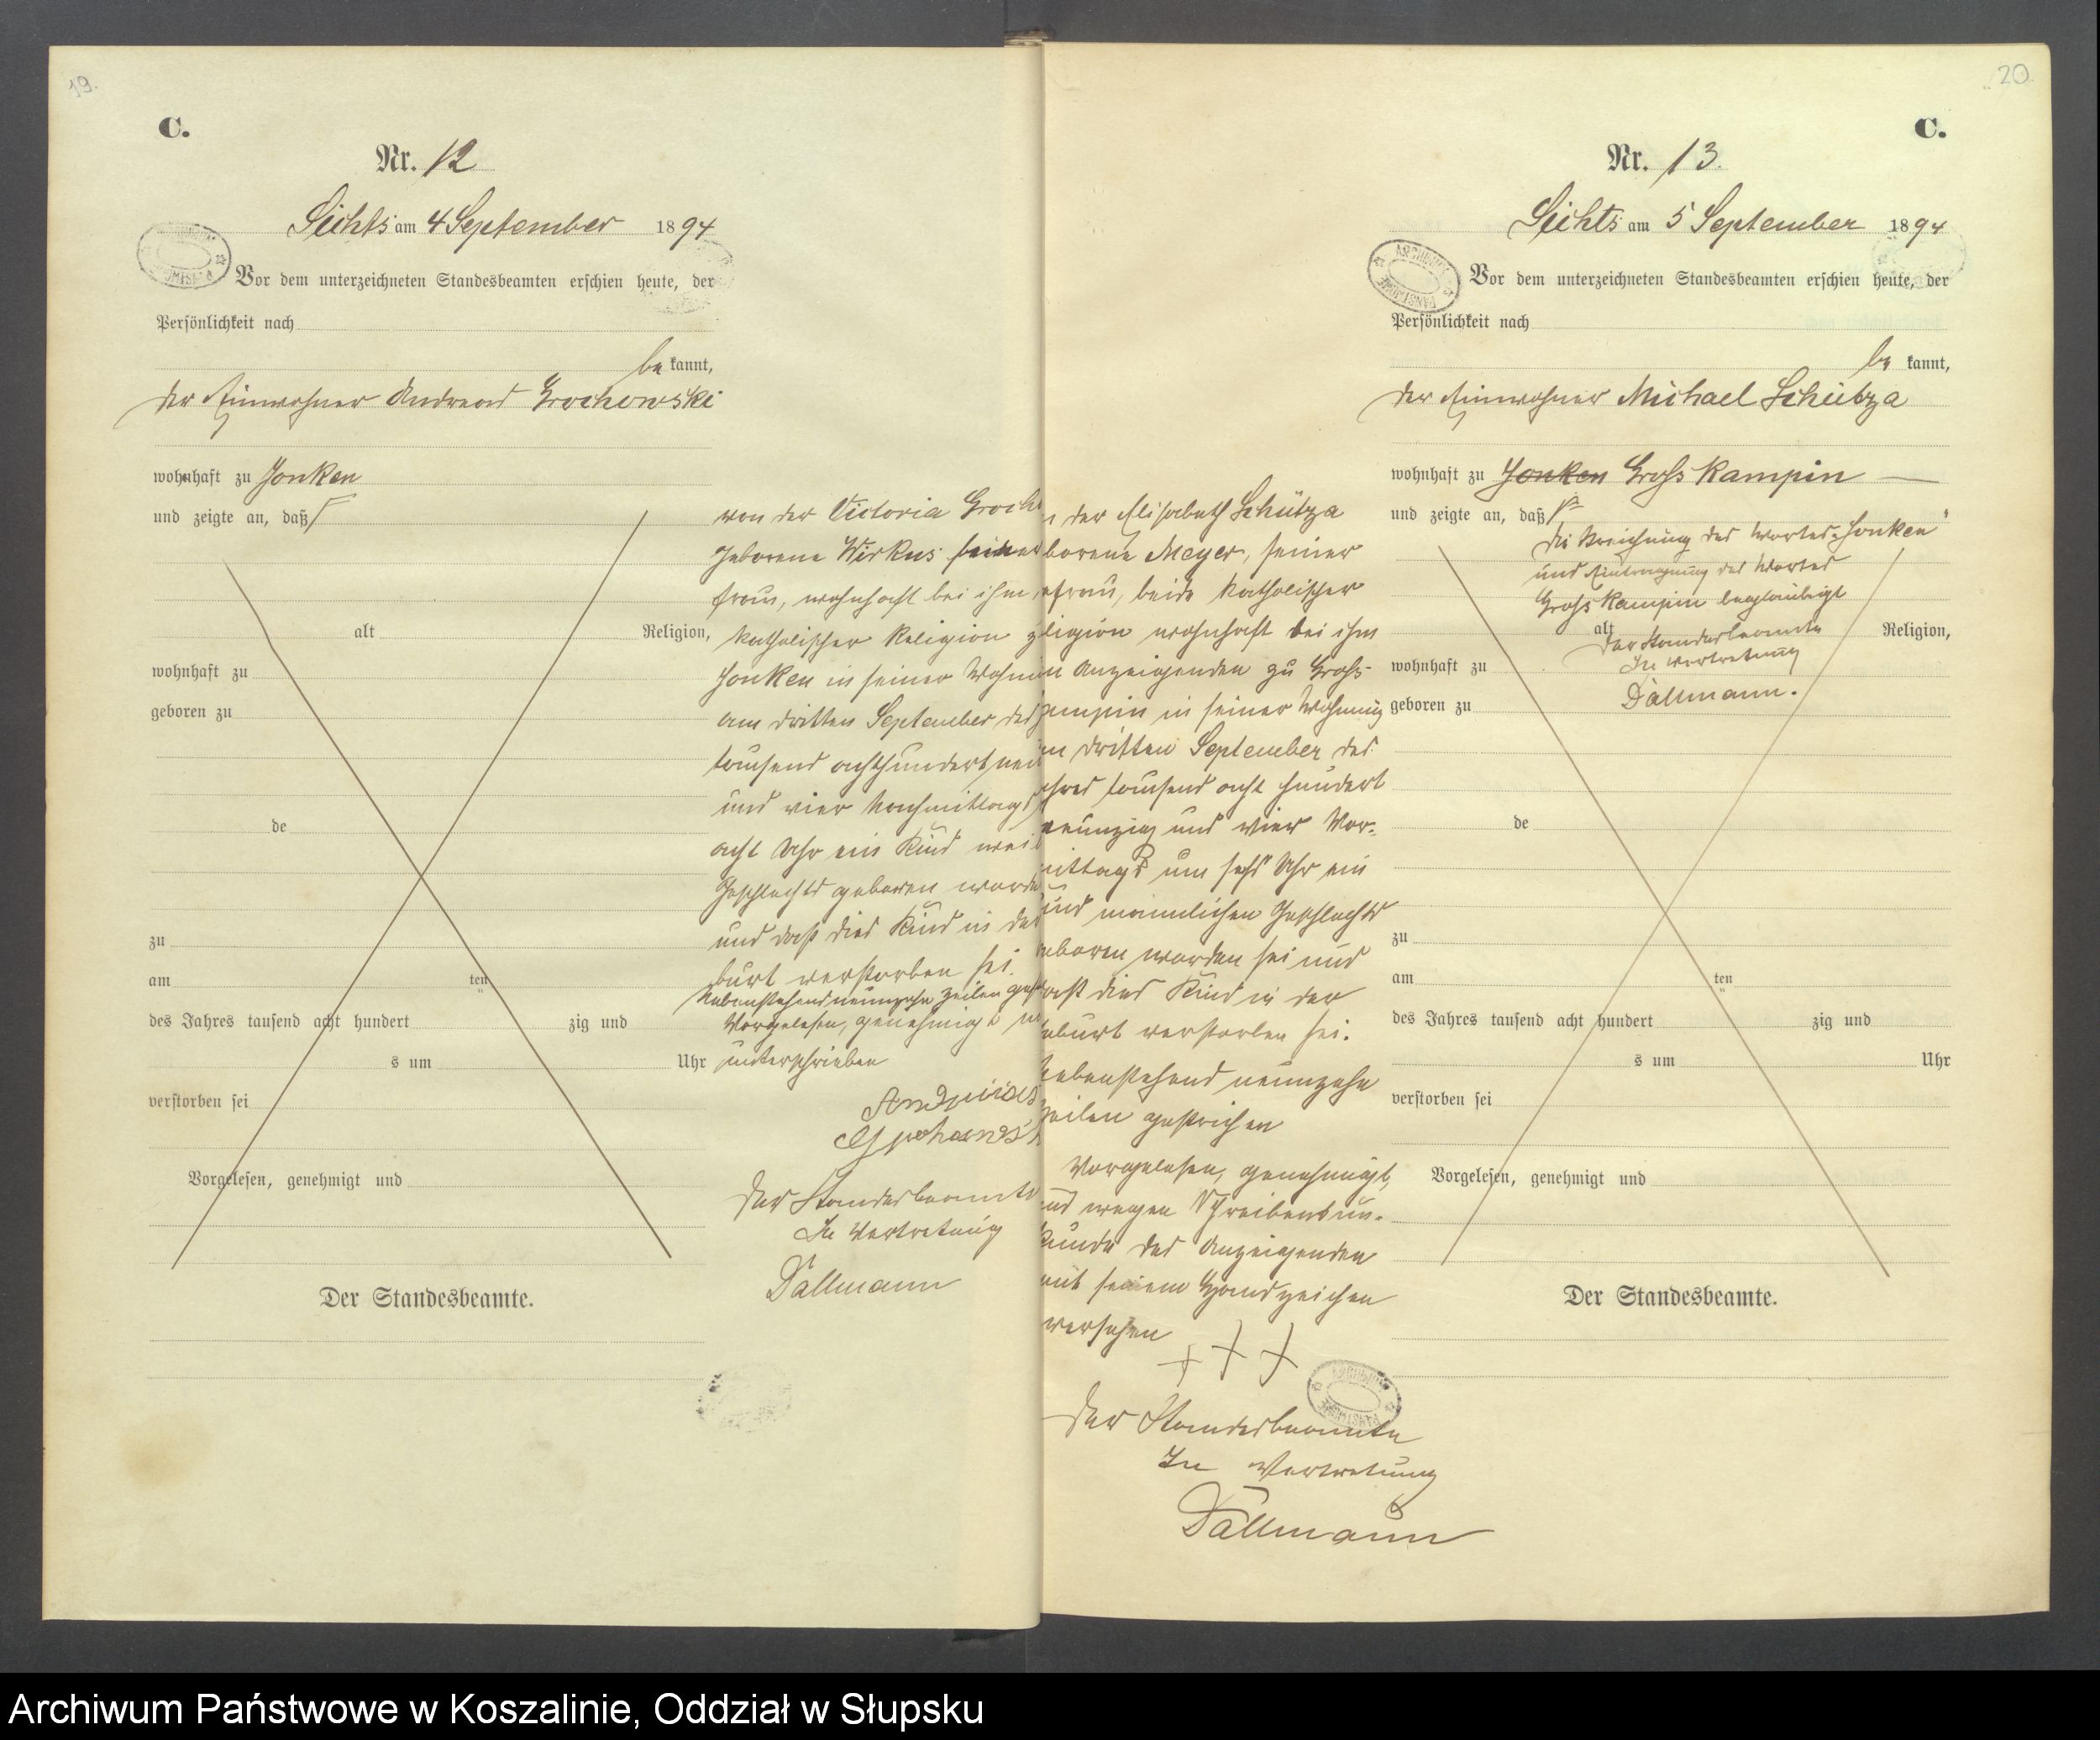 19.
C.
Nr. 12
Lichts am 4 September 1894
Vor dem unterzeichneten Standesbeamten erschien heute, der
Persönlichkeit nach
be kannt,
der Einwohner Andreas Grochowski
wohnhaft zu Jonken
und zeigte an, daß
alt Religion,
wohnhaft zu
geboren zu
de
zu
am ten
des Jahres tausend acht hundert zig und
s um Uhr
verstorben sei
Vorgelesen, genehmigt und
Der Standesbeamte.
von der Victoria Groch
geborene Wirkus seiner
frau, wohnhaft bei ihm
katholischer Religion z
Jonken in seiner Wohnun
am dritten September des
tausend achthundert neun
und vier Nachmittags
acht Uhr ein Kind weib
Geschlechts geboren worde
und daß dies Kind in der
burt verstorben sei.
Nebenstehend neunzehn Zeilen gest
Vorgelesen, genehmigt
unterschrieben
Andreas
Grohowsk
Der Standesbeamte
In Vertretung
Dallmann
20.
C.
Nr. 13.
Lichts am 5 September 1894
Vor dem unterzeichneten Standesbeamten erschien heute, der
Persönlichkeit nach
be kannt,
der Einwohner Michael Schütza
wohnhaft zu Jonken Groß Kampin
und zeigte an, daß
die Streichung des Wortes "Jonken"
und Eintragung des Wortes
Groß Kampin beglaubigt
Der Standesbeamte
In Vertretung
Dallmann.
alt Religion,
wohnhaft zu
geboren zu
de
zu
am ten
des Jahres tausend acht hundert zig und
s um Uhr
verstorben sei
Vorgelesen, genehmigt und
Der Standesbeamte.
n der Elisabeth Schütza
borene Meyer, seiner
efrau, beide katholischer
ligion wohnhaft bei ihm
n Anzeigenden zu Groß-
ampin in seiner Wohnung
m dritten September des
hres tausend acht hundert
neunzig und vier Vor-
mittags um sechs Uhr ein
ind männlichen Geschlechts
eboren worden sei und
aß dies Kind in der
eburt verstorben sei.
Nebenstehend neunzehn
Zeilen gestrichen
Vorgelesen, genehmigt,
und wegen Schreibensun-
kunde des Anzeigenden
mit seinem Handzeichen
versehen
+ + +
Der Standesbeamte
In Vertretung
Dallmann
Archiwum Państwowe w Koszalinie, Oddział w Słupsku